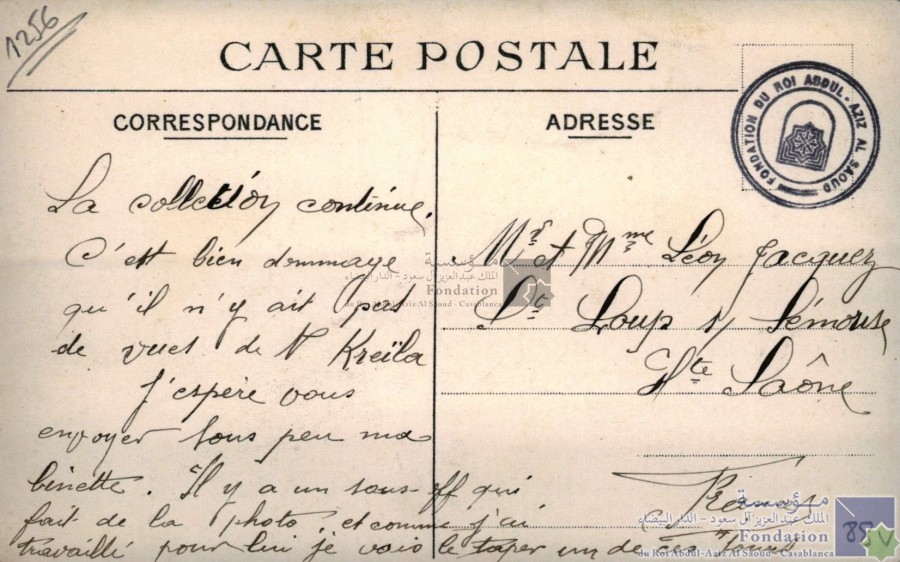 1256
CARTE POSTALE
FONDATION DU ROI ABDUL-AZIZ AL SAOUD
CORRESPONDANCE
La collection continue.
C'est bien dommage
qu'il n'y ait pas
de vues de N Kreïla
J'espère vous
envoyer sous peu ma
binette. Il y a un sous-off qui
fait de la photo, et comme j'ai
travaillé pour lui je vais le taper un de ces jours
ADRESSE
Mr et Mme Léon Jacquez
St Loup s/ Sémouse
Hte Saône
مؤسسة
الملك عبد العزيز آل سعود - الدار البيضاء
Fondation
du Roi Abdul-Aziz Al Saoud - Casablanca
مؤسسة
الملك عبد العزيز آل سعود - الدار البيضاء
Fondation
du Roi Abdul-Aziz Al Saoud - Casablanca